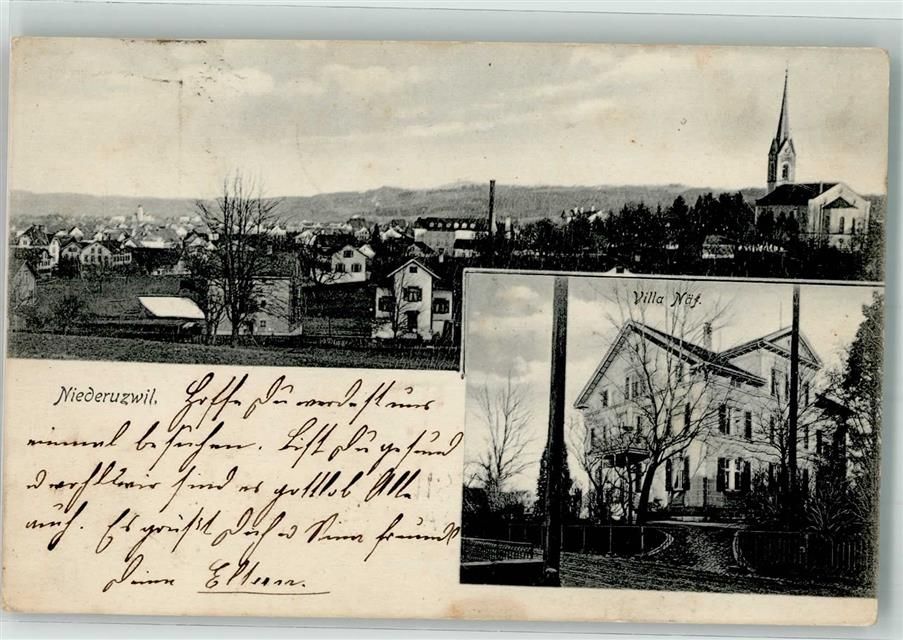 Villa Näf.
Niederuzwil.
Hoffe Du werdest uns
einmal besuchen. Bist Du gesund
u wohl wir sind es gottlob Alle
auch. Es grüsst Dich u Sina
Deine Eltern.